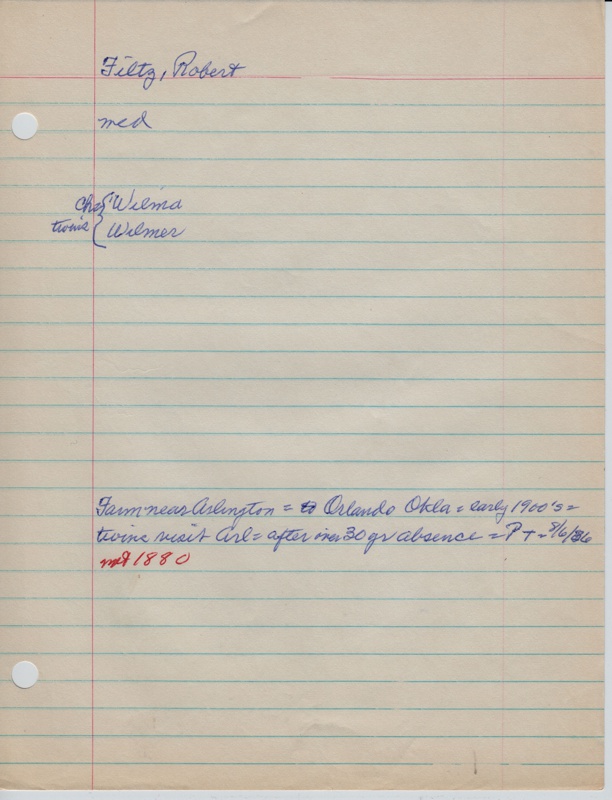 Filtz, Robert
med
Ch { Wilma
twins { Wilmer
Farm near Arlington = to Orlando Okla = early 1900's =
twins visit Arl = after over 30 yr absence = P T - 8/6/36
not 1880